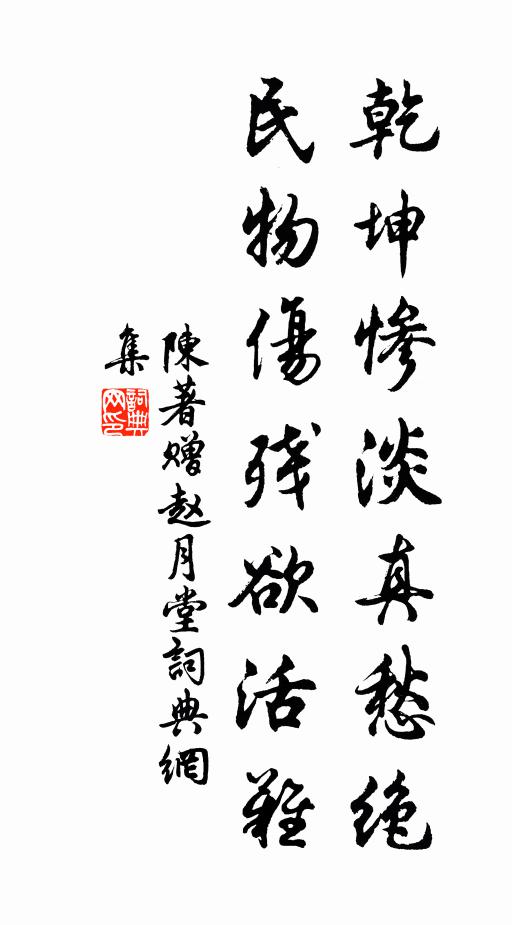 乾坤惨淡真愁绝
民物傷残欲活難
陳著赠赵月堂詞典網
集
詞典
网印